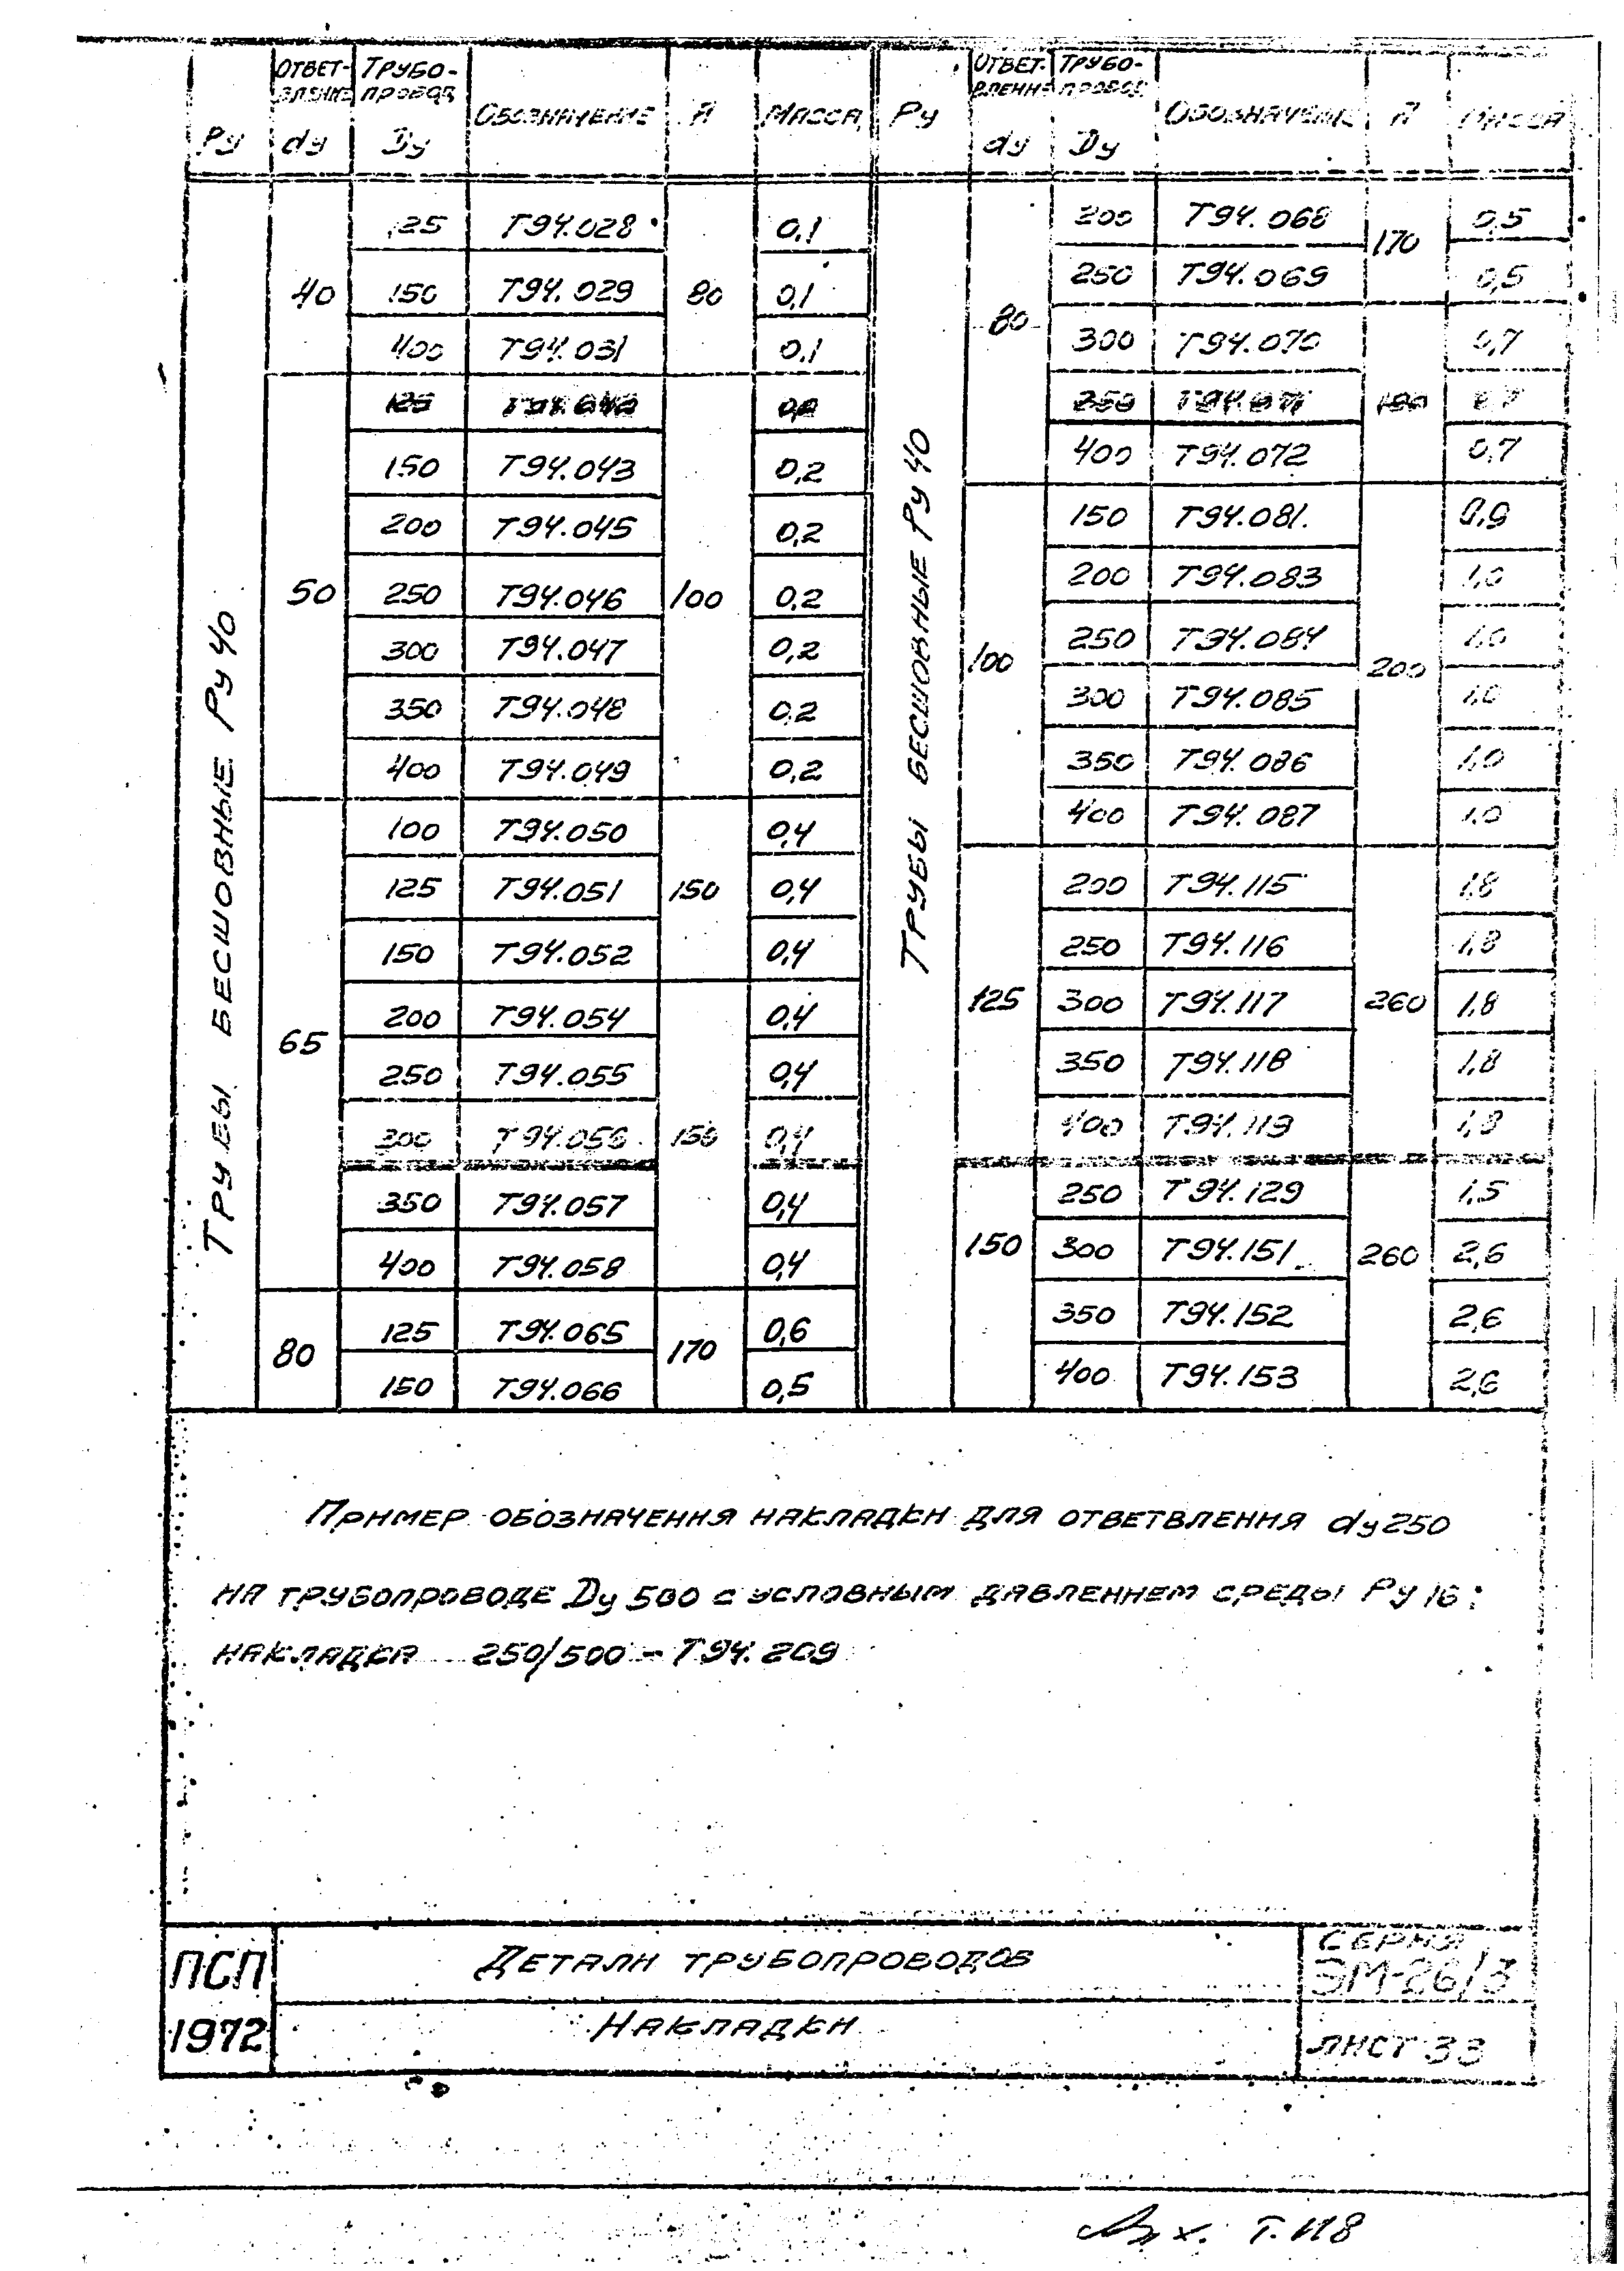 Ру ОТВЕТ- ТРУБО- ОБОЗНАЧЕНИЕ А МАССА
ВЛЕНИЕ ПРОВОД
dу Dу
ТРУБЫ БЕСШОВНЫЕ Ру 40
40 125 Т94.028 80 0,1
150 Т94.029 0,1
400 Т94.031 0,1
50 125 100
150 Т94.043 0,2
200 Т94.045 0,2
250 Т94.046 0,2
300 Т94.047 0,2
350 Т94.048 0,2
400 Т94.049 0,2
65 100 Т94.050 150 0,4
125 Т94.051 0,4
150 Т94.052 0,4
200 Т94.054 150 0,4
250 Т94.055 0,4
300 Т94.056 0,4
350 Т94.057 0,4
400 Т94.058 0,4
80 125 Т94.065 170 0,6
150 Т94.066 0,5
Ру ОТВЕТ- ТРУБО- ОБОЗНАЧЕНИЕ А МАССА
ВЛЕНИЕ ПРОВОД
dу Dу
ТРУБЫ БЕСШОВНЫЕ Ру 40
80 200 Т94.068 170 0,5
250 Т94.069 0,5
300 Т94.070 0,7
350 Т94.071 0,7
400 Т94.072 0,7
100 150 Т94.081 200 0,9
200 Т94.083 1,0
250 Т94.084 1,0
300 Т94.085 1,0
350 Т94.086 1,0
400 Т94.087 1,0
125 200 Т94.115 260 1,8
250 Т94.116 1,8
300 Т94.117 1,8
350 Т94.118 1,8
400 Т94.119 1,8
150 250 Т94.129 260 1,5
300 Т94.151 2,6
350 Т94.152 2,6
400 Т94.153 2,6
ПРИМЕР ОБОЗНАЧЕНИЯ НАКЛАДКИ ДЛЯ ОТВЕТВЛЕНИЯ dу 250
НА ТРУБОПРОВОДЕ Dу 500 С УСЛОВНЫМ ДАВЛЕНИЕМ СРЕДЫ Ру 16:
НАКЛАДКА 250/500 - Т94.209
ПСП
1972
ДЕТАЛИ ТРУБОПРОВОДОВ
НАКЛАДКИ
СЕРИЯ
ЭМ-26/3
ЛИСТ 33
Т. 118